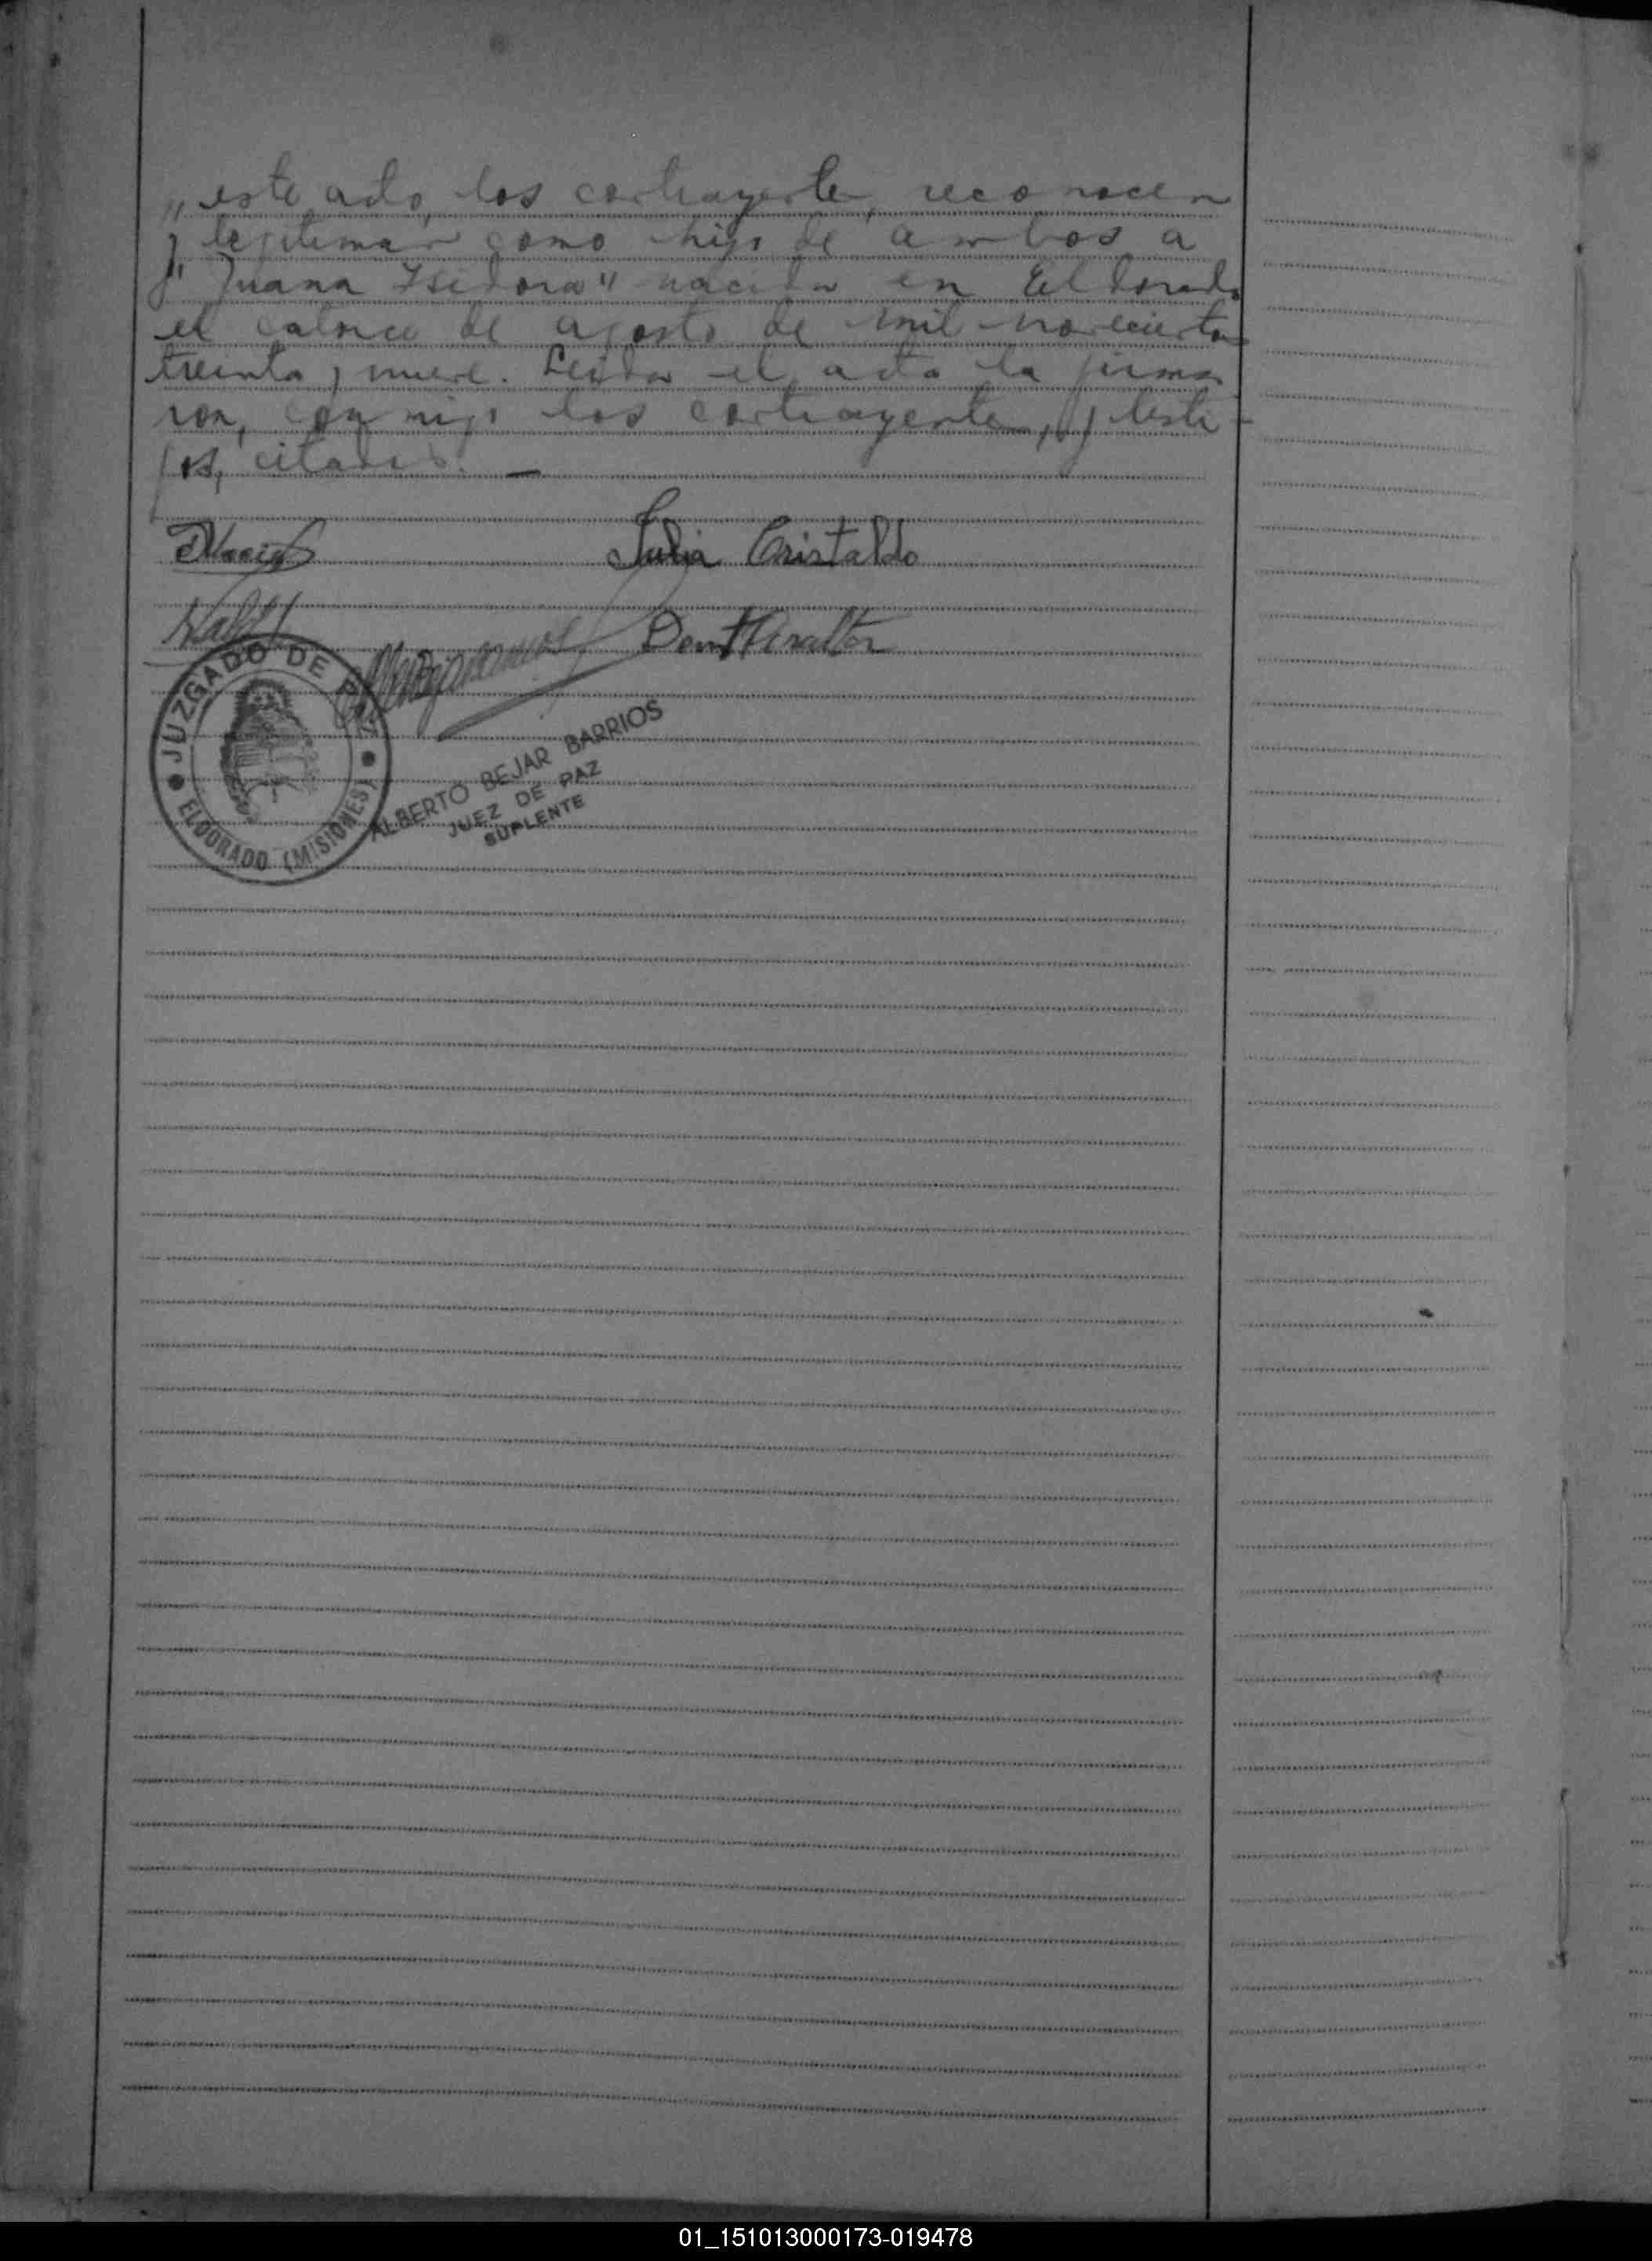 " este acto los contrayentes reconocen
y legitiman como hijo de ambos a
" Juana Isidora" nacida en Eldorado
el catorce de agosto de mil novecientos
treinta y nueve. Leida el acta la firma
ron, con migo los contrayentes, y testi-
gos, citados. —
Julia Cristaldo
JUZGADO DE PAZ
ELDORADO (MISIONES)
ALBERTO BEJAR BARRIOS
JUEZ DE PAZ
SUPLENTE
01_151013000173-019478